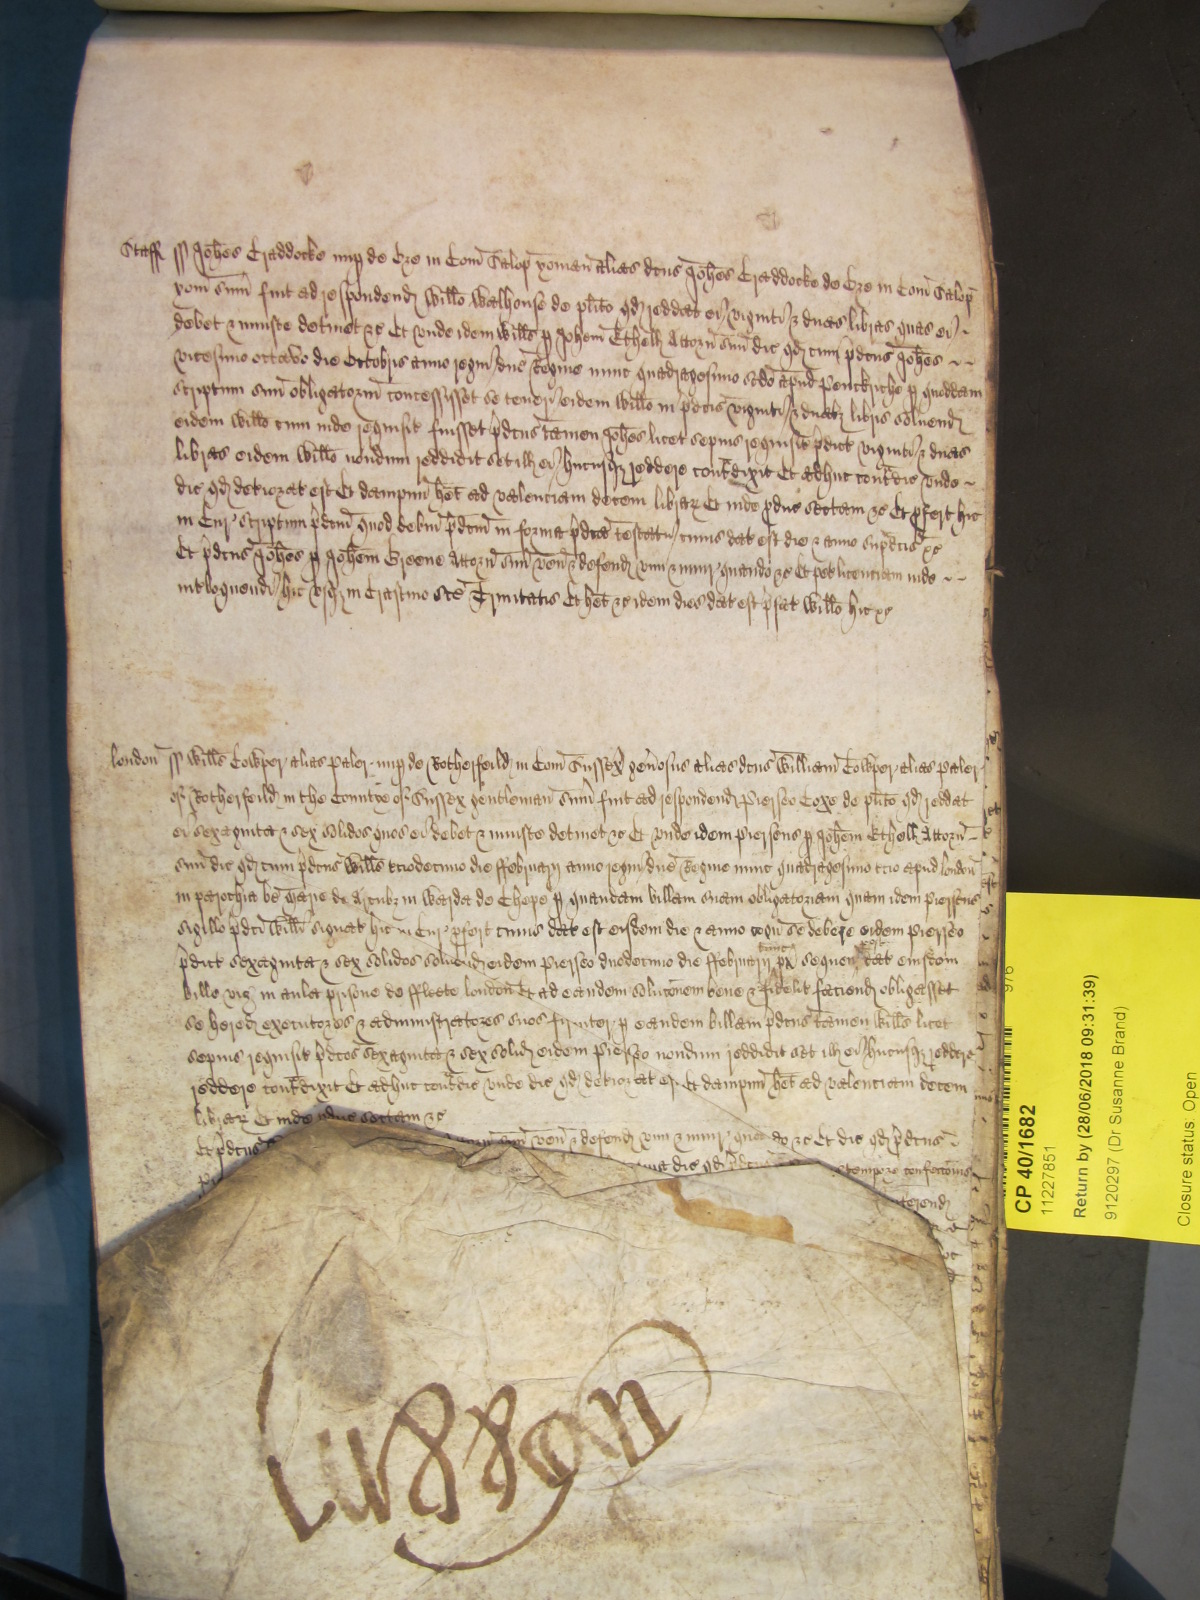 Staff ss Johes Craddocke nup de Oze in Com Salop yoman alias dcus Johes Craddocke de Oze in Com Salop
yom sum fuit ad respondend Willo Walhouse de plito qd reddat ei viginti & duas libras quas ei
debet & iniuste detinet &c Et unde idem Wills p Johem Ethell Attorn suu dic qd cum pdcus Johes
vicesimo octavo die Octobris anno regni dne Regine nunc quadragesimo scdo apud Penckriche p quoddam
scriptum suu obligatoriu concessisset se teneri eidem Willo in pdcis viginti & duab libris solvend
eidem Willo cum inde requisit fuisset pdcus tamen Johes licet sepius requisit pdict viginti & duas
libras eidem Willo nondum reddidit set ill ei hucusq reddere contdixit Et adhuc contdic unde
dic qd deteriorat est Et dampnu het ad valenciam decem librar Et inde pduc sectam &c Et pfert hic
in Cur scriptum pdcm quod debitu pdcm in forma pdca testatur cuius dat est die & anno supdcis &c
Et pdcus Johes p Johem Greene Attorn suu ven & defend vim & iniur quando &c Et pet licentiam inde
intloquendi hic usq in Crastino Sce Trinitatis Et het &c idem dies dat est pfat Willo hic &c
London ss Wills Cowper alias Paler nup de Rotherfeild in Com Sussex generosus alias dcus William Cowper alias Paler
of Rotherfeild in the Countye of Sussex gentleman sum fuit ad respondend Pierseo Coxe de plito qd reddat
ei sexaginta & sex solidos quos ei debet & iniuste detinet &c Et unde idem Pierseus p Johem Ethell Attorn
suu dic qd cum pdcus Wills tciodecimo die ffebruarij anno regni dne Regine nunc quadragesimo tcio apud London
in parochia be Marie de Arcubz in Warda de Chepe p quandam billam suam obligatoriam quam idem Pierseus
sigillo pdci Willi signat hic in Cur pfert cuius dat est eisdem die & anno cogn se debere eidem Pierseo
pdict sexaginta & sex solidos solvend eidem Pierseo duodecimo die ffebruarij tunc px sequen post dat eiusdem
bille viz in aula prisone de ffleete London Et ad eandem soluconem bene & fidelit faciend obligasset
se hered executores & administratores suos firmiter p eandem billam pdcus tamen Wills licet
sepius requisit pdcos sexaginta & sex solid eidem Pierseo nondum reddidit set ill ei hucusq reddere
reddere contdixit Et adhuc contdic unde dic qd deteriorat est Et dampnu het ad valenciam decem
librar Et inde pduc sectam &c
Et pdcus suu ven & defend vim & iniur quando &c Et dic qd pdcus
dic qd pdcus tempore confeccionis
CP 40/1682
11227851
Return by (28/06/2018 09:31:39)
9120297 (Dr Susanne Brand)
Closure status: Open
976